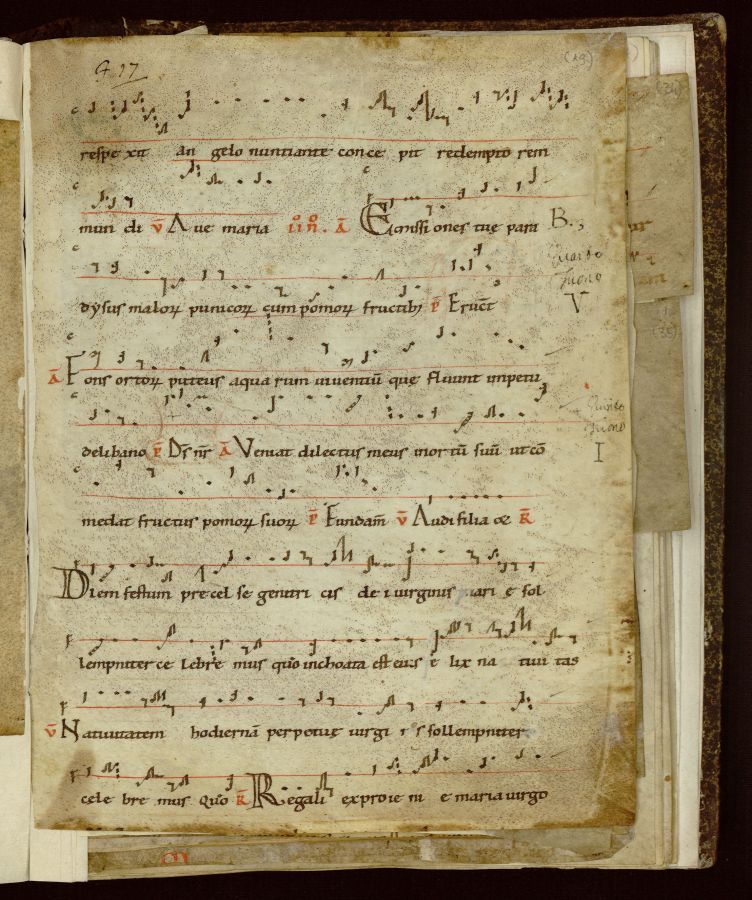 G. 17
(19)
respe xit an gelo nuntiante conce pit redempto rem
mun di v̄ Aue maria iiͦ nͦ. Ā Emissi ones tuę para B.
dysus maloꝝ punicoꝝ cum pomoꝝ fructibꝫ p Eruct̄
Quarto Tuono V
Ā Fons ortoꝝ puteus aqua rum uiuentiū que fluunt impetu
de libano p̄ Dn̄s nr̄ Ā Veniat dilectus meus inortū suū ut cō
Tuono I
medat fructus pomoꝝ suoꝝ p̄ Fundam̄ v̄ Audi filia R̄
Diem festum pre cel se genitri cis de i uirginis mari e sol
lempniter ce lebre mus quo inchoata est eius e lix na tiui tas
v̄ Natiuitatem hodiernā perpetuę uirgi sollempniter
cele bre mus Quo R̄ Regali exproie ni e maria uirgo